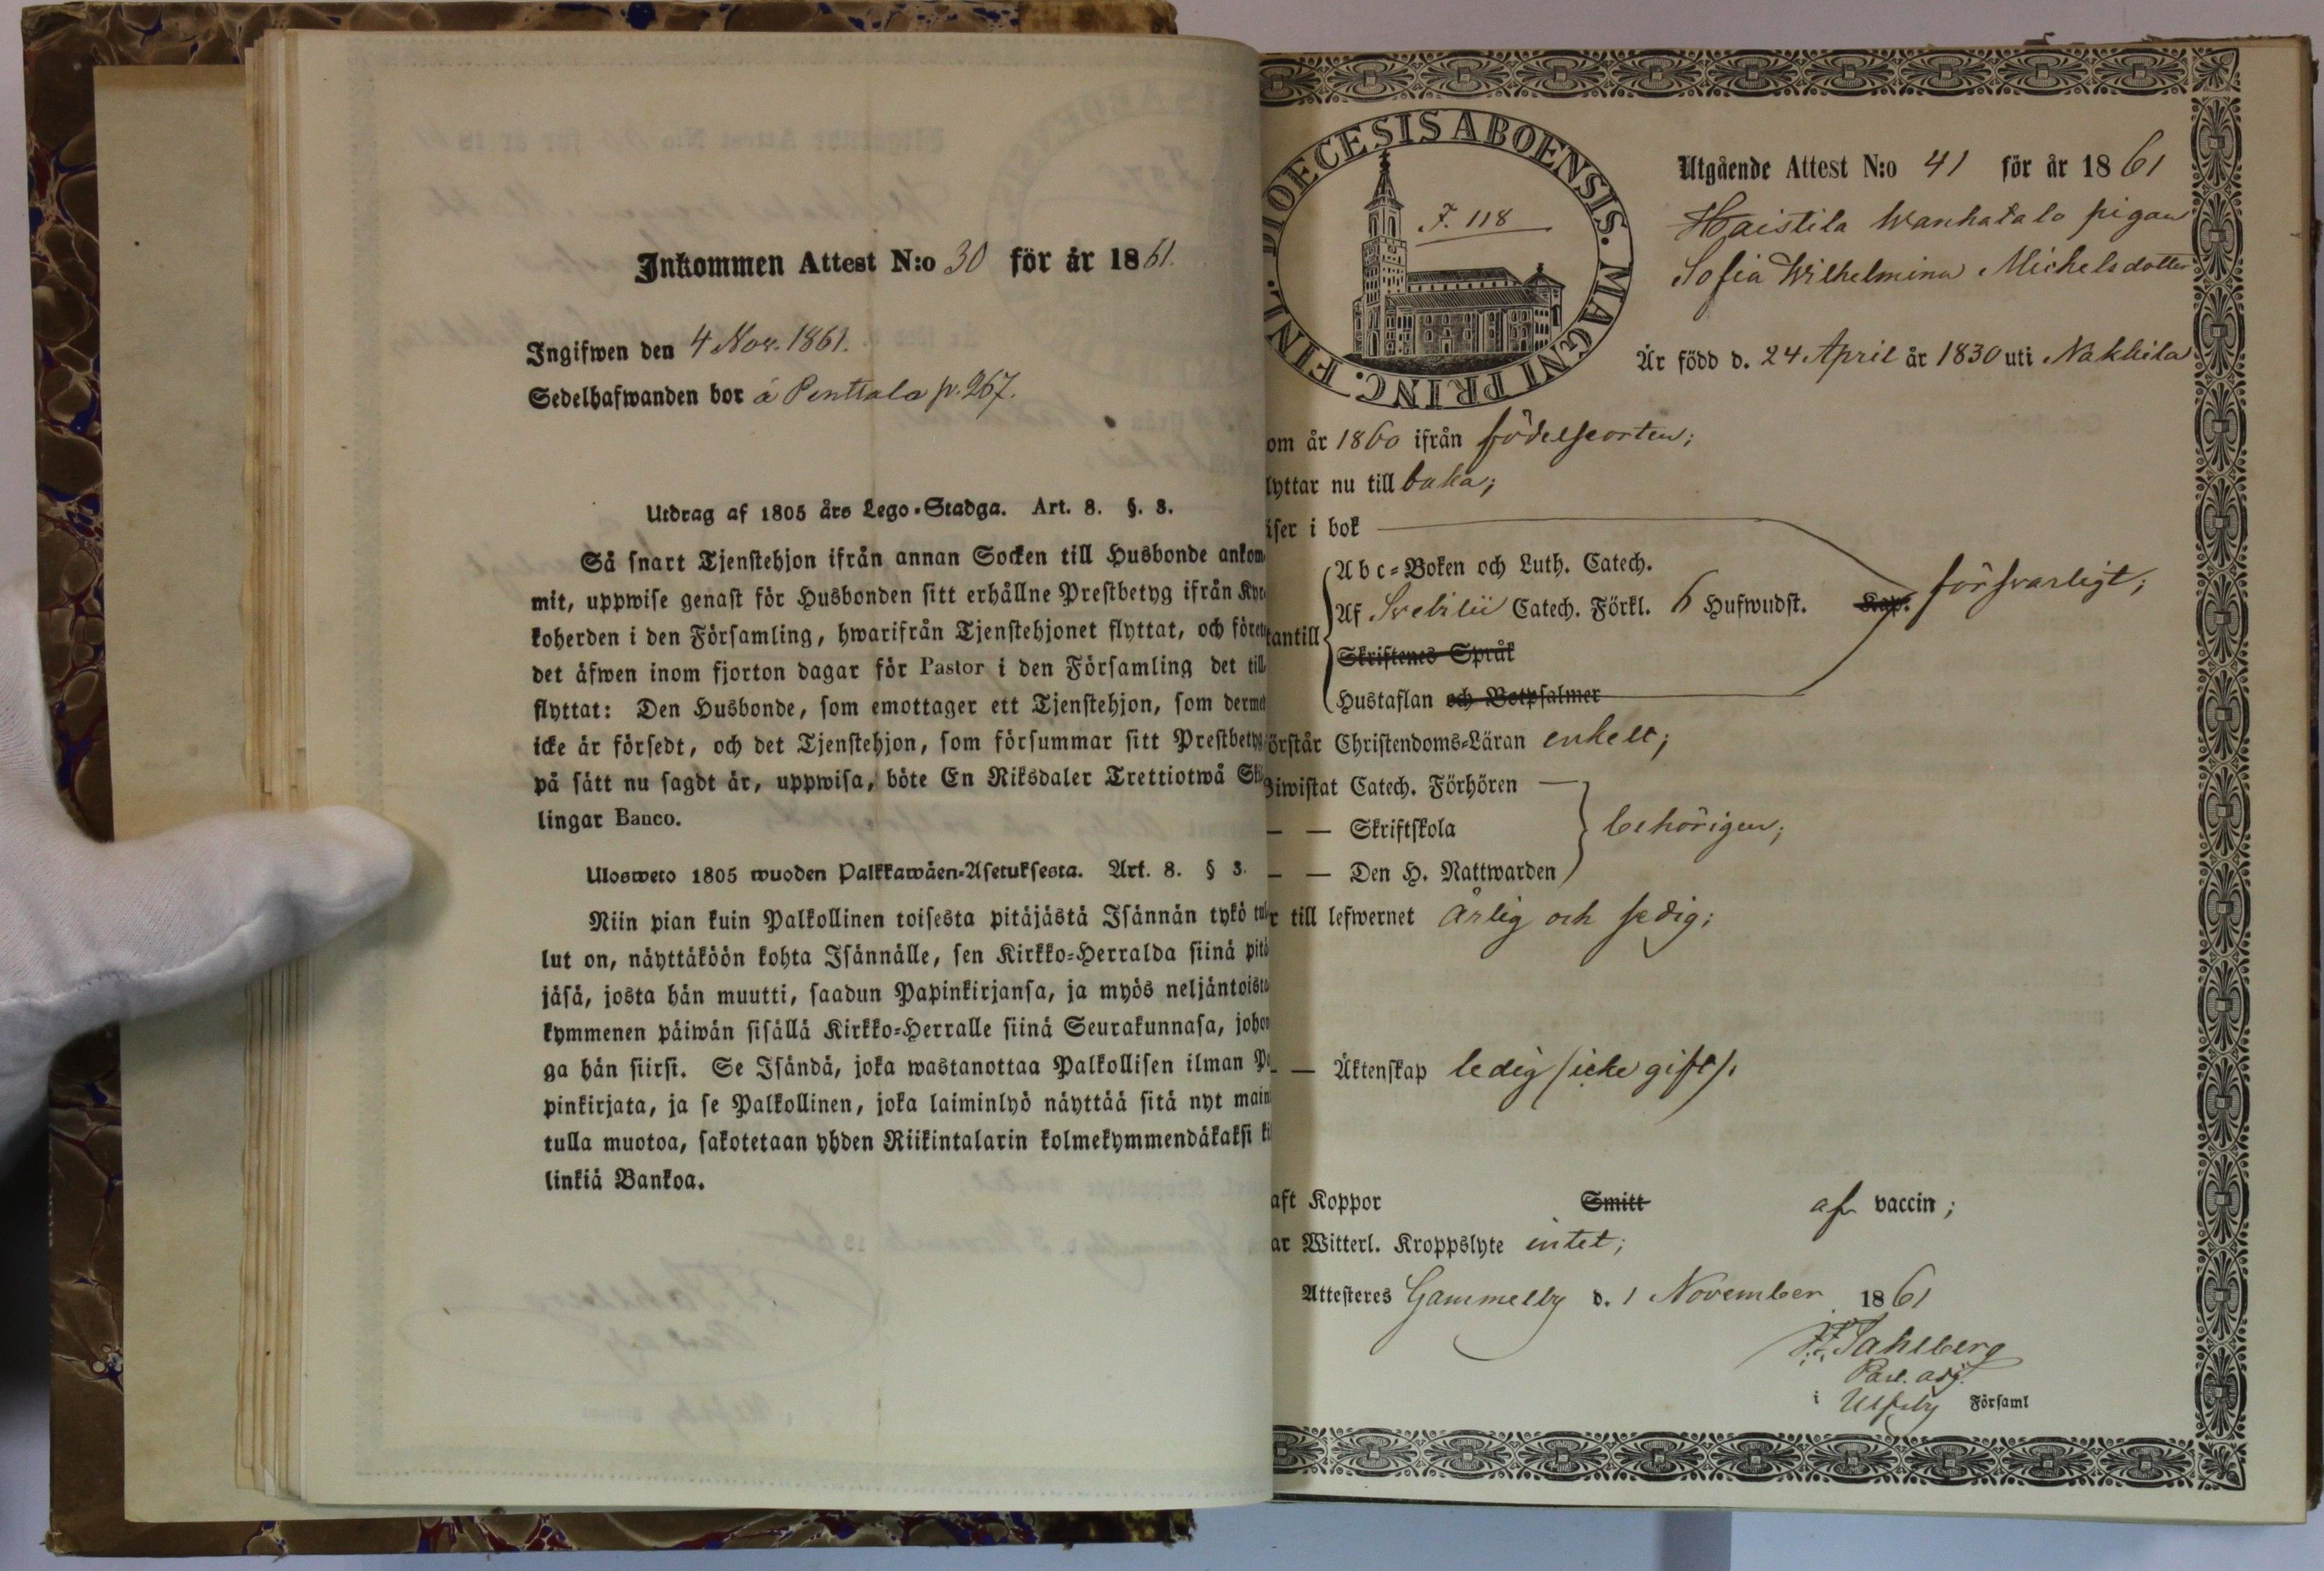 Inkommen Attest N:o 30 för år 1861.
Ingifwen den 4 Nov. 1861.
Sedelhafwanden bor á Penttala p. 267.
Utdrag af 1805 års Lego-Stadga. Art. 8. §. 3.
Så snart Tjenstehjon ifrån annan Socken till Husbonde ankom
mit, uppwise genast för Husbonden sitt erhållne Prestbetyg ifrån Kyr
koherden i den Församling, hwarifrån Tjenstehjonet flyttat, och förete
det äfwen inom fjorton dagar för Pastor i den Församling det till
flyttat: Den Husbonde, som emottager ett Tjenstehjon, som dermed
icke är försedt, och det Tjenstehjon, som försummar sitt Prestbetyg
på sätt nu sagdt är, uppwisa, böte En Riksdaler Trettiotwå Skil
lingar Banco.
Ulosweto 1805 wuoden Palkkawäen-Asetuksesta. Art. 8. § 3.
Niin pian kuin Palkollinen toisesta pitäjästä Isännän tykö tul
lut on, näyttäköön kohta Isännälle, sen Kirkko-Herralda siinä pitä
jäsä, josta hän muutti, saadun Papinkirjansa, ja myös neljäntoista
kymmenen päiwän sisällä Kirkko-Herralle siinä Seurakunnasa, johon
ga hän siirsi. Se Isändä, joka wastanottaa Palkollisen ilman Pa
pinkirjata, ja se Palkollinen, joka laiminlyö näyttää sitä nyt main
tulla muotoa, sakotetaan yhden Riikintalarin kolmekymmendäkaksi kil
linkiä Bankoa.
DIOECESIS ABOENSIS. MAGNI PRINC. FINL.
F. 118
Utgående Attest N:o 41 för år 1861
Haistila Wanhatalo pigan
Sofia Wilhelmina Michelsdotter
Är född d. 24 April år 1830 uti Nakkila
om år 1860 ifrån födelseorten;
lyttar nu till baka;
iser i bok
Abc-Boken och Luth. Catech.
Af Svebilii Catech. Förkl. 6 Hufwudst. Kap. försvarligt;
tantill
Skriftenes Språk
Hustaflan och Botpsalmer
örstår Christendoms-Läran enkelt;
Biwistat Catech. Förhören
— — Skriftskola behörigen;
— — Den H. Nattwarden
r till lefwernet ärlig och sedig;
— — Äktenskap ledig /icke gift/.
aft Koppor Smitt af vaccin;
ar Witterl. Kroppslyte intet;
Attesteres Gammelby d. 1 November 1861
F. F. Dahlberg
Past. adj.
i Ulfsby Församl